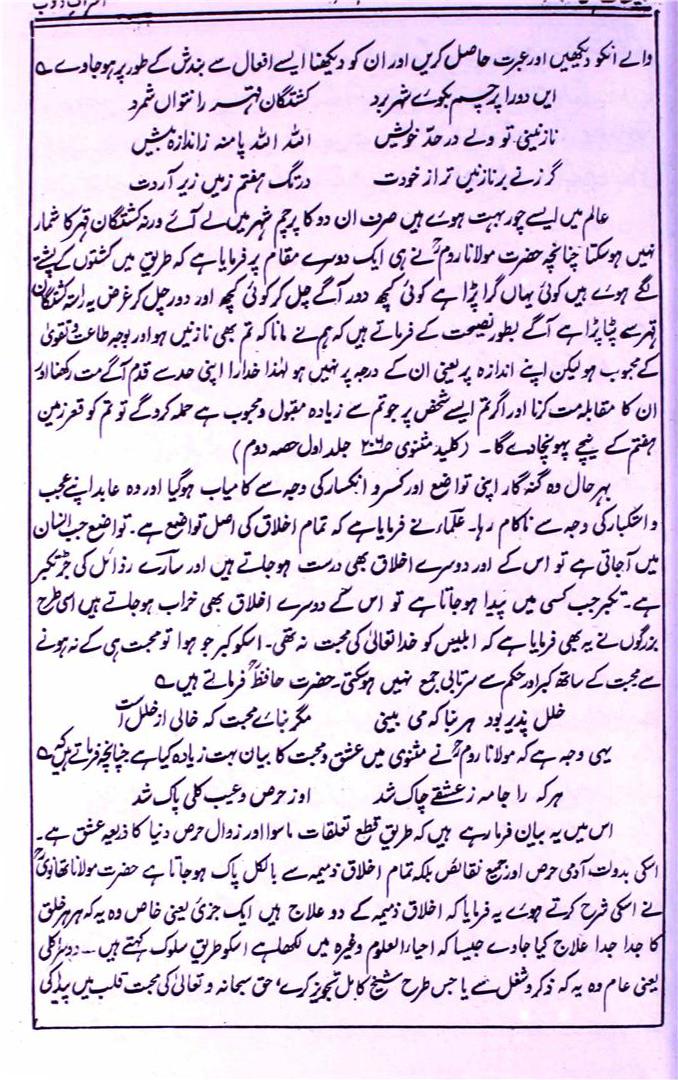 والے انکو دیکھیں اور عبرت حاصل کریں اور ان کو دیکھنا ایسے افعال سے بندش کے طور پر ہو جاوے ؎
ایں دو را پرچم بکوے شہر برد کشتگان قہر را نتواں شمرد
نازنینی تو ولے در حدّ خویش اللہ اللہ پا منہ ز اندازہ بیش
گر زنے بر نازنین تر از خودت در تگ ہفتم زمیں زیر آردت
عالم میں ایسے چور بہت ہوے ہیں صرف ان دو کا پرچم شہر میں لے آئے ورنہ کشتگان قہر کا شمار
نہیں ہو سکتا چنانچہ حضرت مولانا رومؒ نے ہی ایک دوسرے مقام پر فرمایا ہے کہ طریق میں کشتوں کے پشتے
لگے ہوے ہیں کوئی یہاں گرا پڑا ہے کوئی کچھ دور آگے چل کر کوئی کچھ اور دور چل کر غرض یہ راستہ کشتگان
قہر سے پٹا پڑا ہے آگے بطور نصیحت کے فرماتے ہیں کہ ہم نے مانا کہ تم بھی نازنیں ہو اور بوجہ طاعت و تقویٰ
کے محبوب ہو لیکن اپنے اندازہ پر یعنی ان کے درجہ پر نہیں ہو لہٰذا خدارا اپنی حد سے قدم آگے مت رکھنا اور
ان کا مقابلہ مت کرنا اور اگر تم ایسے شخص پر جو تم سے زیادہ مقبول و محبوب ہے حملہ کرو گے تو تم کو قعر زمین
ہفتم کے نیچے پہونچا دے گا ۔ (کلید مثنوی ص۲۰۶ جلد اول حصہ دوم)
بہر حال وہ گنہ گار اپنی تواضع اور کسر و انکسار کی وجہ سے کامیاب ہو گیا اور وہ عابد اپنے عجب
و استکبار کی وجہ سے ناکام رہا۔ علماء نے فرمایا ہے کہ تمام اخلاق کی اصل تواضع ہے۔ تواضع جب انسان
میں آجاتی ہے تو اس کے اور دوسرے اخلاق بھی درست ہو جاتے ہیں اور سارے رذائل کی جڑ تکبر
ہے۔ تکبر جب کسی میں پیدا ہو جاتا ہے تو اس کے دوسرے اخلاق بھی خراب ہو جاتے ہیں اسی طرح
بزرگوں نے یہ بھی فرمایا ہے کہ ابلیس کو خدا تعالیٰ کی محبت نہ تھی۔ اسکو کبر جو ہوا تو محبت ہی کے نہ ہونے
سے محبت کے ساتھ کبر اور حکم سے سرتابی جمع نہیں ہو سکتی۔ حضرت حافظؒ فرماتے ہیں ؎
خلل پذیر بود ہر بنا کہ می بینی مگر بناے محبت کہ خالی از خلل است
یہی وجہ ہے کہ مولانا رومؒ نے مثنوی میں عشق و محبت کا بیان بہت زیادہ کیا ہے چنانچہ فرماتے ہیں کہ ؎
ہر کہ را جامہ ز عشقے چاک شد او ز حرص و عیب کلی پاک شد
اس میں یہ بیان فرما رہے ہیں کہ طریق قطع تعلقات ماسوا اور زوال حرص دنیا کا ذریعہ عشق ہے۔
اسکی بدولت آدمی حرص اور جمیع نقائص بلکہ تمام اخلاق ذمیمہ سے بالکل پاک ہو جاتا ہے حضرت مولانا تھانویؒ
نے اسکی شرح کرتے ہوے یہ فرمایا کہ اخلاق ذمیمہ کے دو علاج ہیں ایک جزئی یعنی خاص وہ یہ کہ ہر ہر خلق
کا جدا جدا علاج کیا جاوے جیسا کہ احیاء العلوم وغیرہ میں لکھا ہے اسکو طریق سلوک کہتے ہیں ۔ دوسرا کلی
یعنی عام وہ یہ کہ ذکر و شغل سے یا جس طرح شیخ کامل تجویز کرے، حق سبحانہ و تعالیٰ کی محبت قلب میں پیدا کی